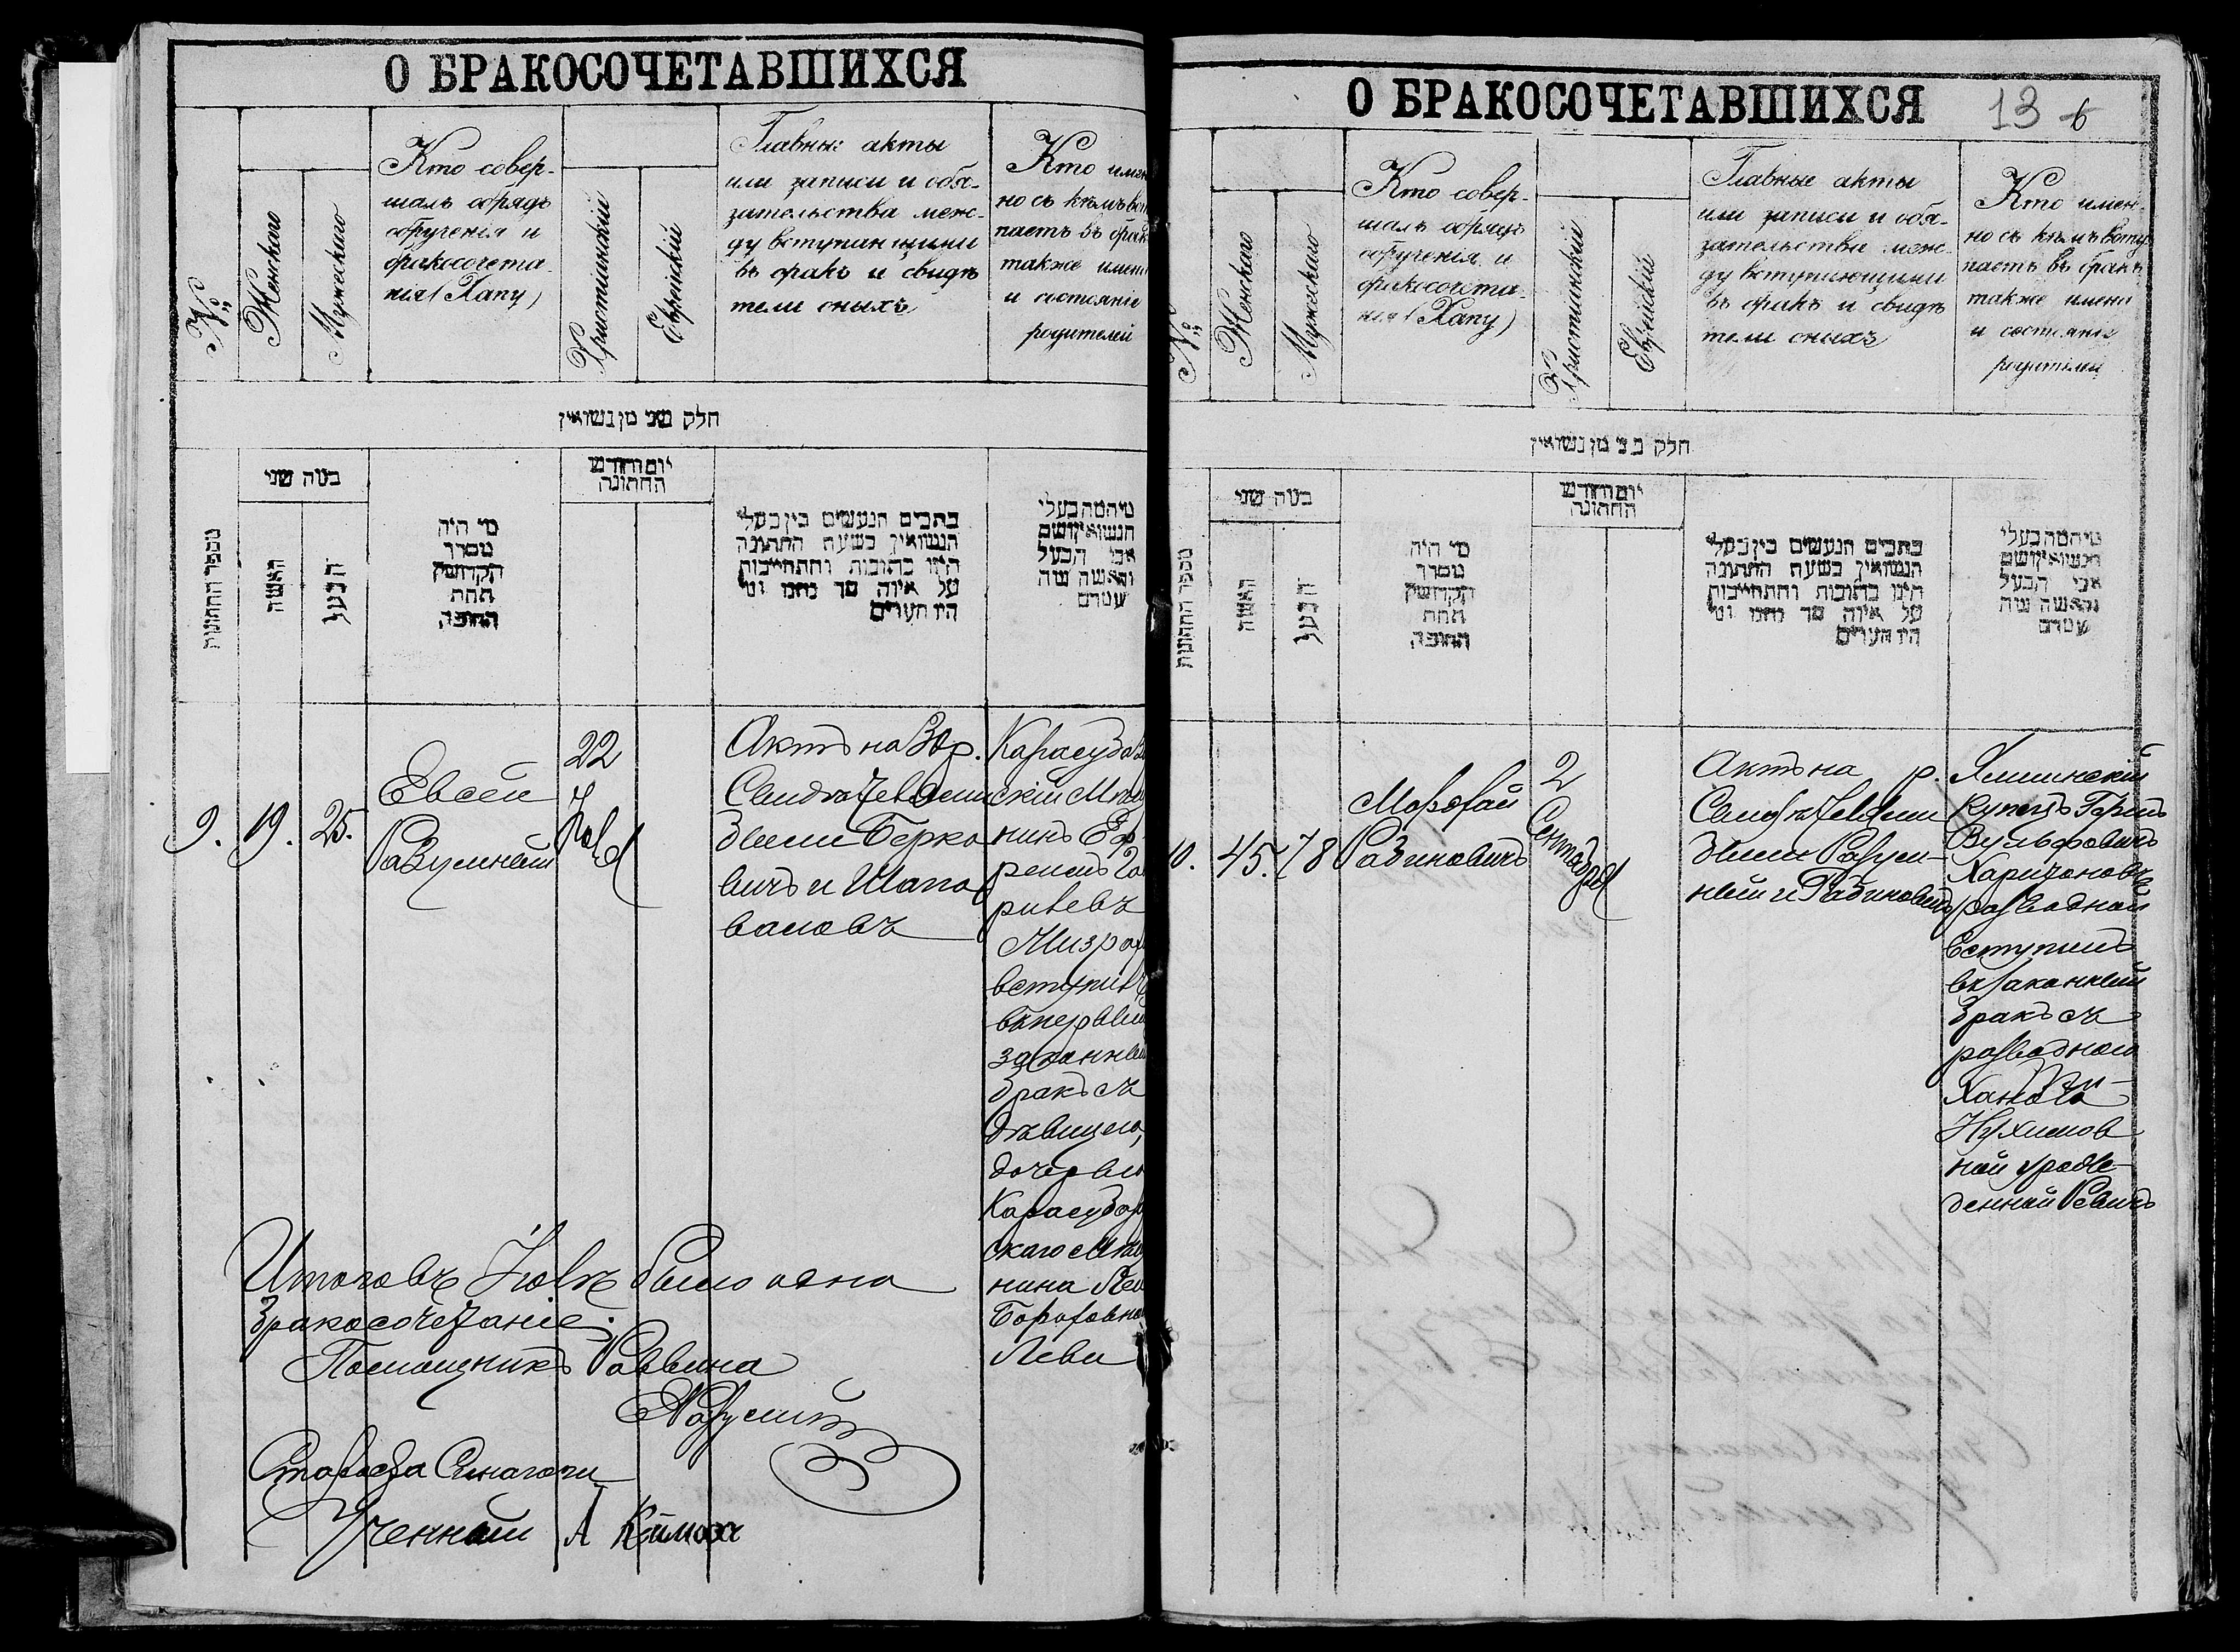 О БРАКОСОЧЕТАВШИХСЯ
№
Женскаго
Мужескаго
Кто совер-
шалъ обрядъ
обрученія и
бракосочета-
нія (Хапу)
Христіанскій
Еврейскій
Главные акты
или записи и обя-
зательства меж-
ду вступающими
въ бракъ и свидѣ
тели оныхъ
Кто имен
но съ кѣмъ вст
паетъ въ брак
также имена
и состояніе
родителей
חלק שני מן נשואין
מספר החתונות
כמה שני
האשה
הבעל
מי היה
מסדר
הקדושין
תחת
החופה
יום וחודש
החתונה
כתבים הנעשים בין בעלי
הנשואין בשעת החתונה
היינו כתובות והתחייבות
על איזה סך נתנו ומי
היו העדים
מי המה בעלי
הנשואין ושם
אבי הבעל
והאשה
9.
19.
25.
Евсей
Разумный
22
Іюля
Актъ на 30 р.
Свидѣтелями
были Берко
вичъ и Шапо
валовъ
Карасубаз
скій Мѣщ
нинъ Еф
ремъ Га
вступилъ
въ первый
законный
бракъ съ
дѣвицею,
дочерью
Карасубаз
скаго Мѣщ
нина
Леви
Итого въ Іюлѣ было одно
бракосочетаніе.
Помощникъ Раввина
Е Разумный
Староста Синагоги
Ученный А
О БРАКОСОЧЕТАВШИХСЯ
13 6
№
Женскаго
Мужескаго
Кто совер-
шалъ обрядъ
обрученія и
бракосочета-
нія (Хапу)
Христіанскій
Еврейскій
Главные акты
или записи и обя-
зательства меж-
ду вступающими
въ бракъ и свидѣ
тели оныхъ
Кто имен-
но съ кѣмъ всту
паетъ въ бракъ
также имена
и состояніе
родителей
חלק מן נשואין
מספר החתונות
כמה שני
האשה
הבעל
מי היה
מסדר
הקדושין
תחת
החופה
יום וחודש
החתונה
כתבים הנעשים בין בעלי
הנשואין בשעת החתונה
היינו כתובות והתחייבות
על איזה סך נתנו ומי
היו העדים
מי המה בעלי
הנשואין ושם
אבי הבעל
והאשה
10.
45.
78
Мордхай
Рабиновичъ
2
Сентября
Актъ на р.
Свидѣтелями
были Разум-
ный и Рабиновичъ
купецъ Герцъ
Вульфовичъ
разводный
вступилъ
въ законный
бракъ съ
разводною
Ханою
Нухимов
ной урож-
денной Ревичъ